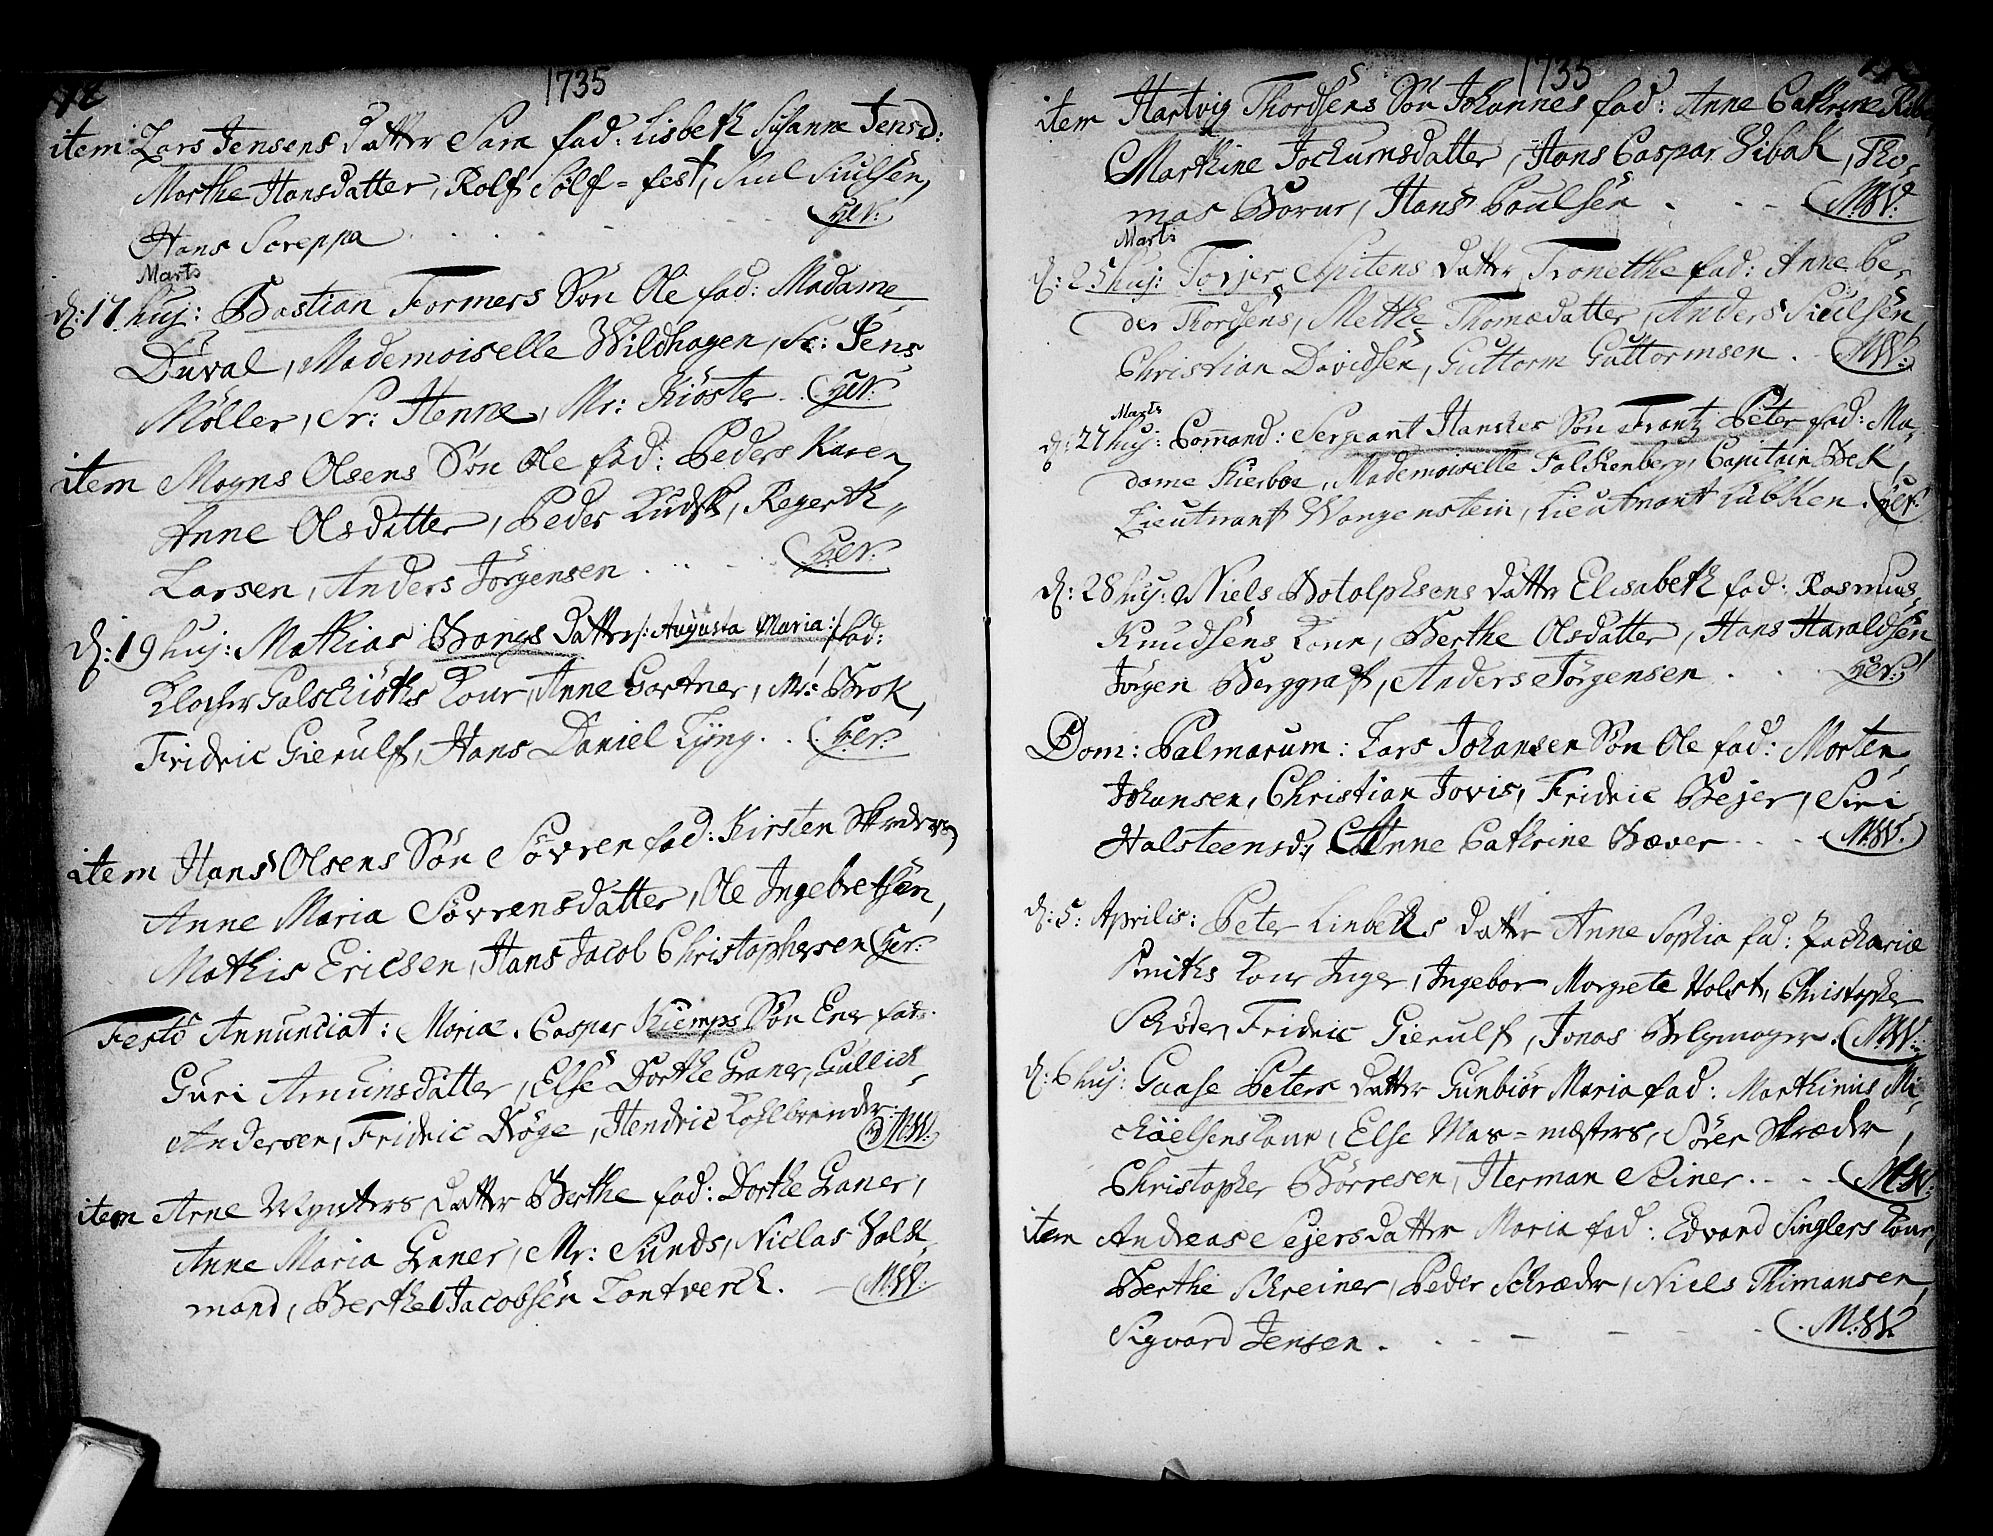 1735
item Lars Jensens Datter Sara fad: Lisbeth Susanna Jensd:
Marthe Hansdatter, Rolf Sølf=fest, Siul Siulsen,
Hans Screppa
Marts
d: 17 huj: Bastian Formers Søn Ole fad: Madame
Duval, Mademoiselle Wildhagen, Sr: Jens
Möller, Sr: Henne, Mr: Kiöster
item Mogns Olsens Søn Ole fad: Peders Karen,
Anne Olsdatter, Peder Kudsk, Regerth
Larsen, Anders Jörgensen
d: 19 huj: Mathias Bangs Datter /: Augusta Maria :/ fad:
Klocher Galschiøths Kone, Anne Gartner, Mr: Brok,
Fridric Gierulf, Hans Daniel Lÿng
item Hans Olsens Søn Søvren fad: Kirsten Skreders,
Anne Maria Søvrensdatter, Ole Ingebretsen,
Mathis Ericsen, Hans Jacob Christophersen
Festo Annunciat: Mariæ. Caspar Kiemps Søn fad:
Guri Amunsdatter, Else Dorthe Graner, Gullich
Andersen, Fridric Køge, Hendric Kohlbrender. M.W:
item Arne Wynters Datter Berthe fad: Dorthe Graner,
Anne Maria Graner, Mr: Sunds, Niclas Volk
mand, Berthel Jacobsen Tontverch. M.W:
1735
item Hartvig Thordsens Søn Johannes fad: Anne Cathrine
Marthine Jochumsdatter, Hans Caspar Vibak, Tho-
mas Borur, Hans Poulsen M.W:
Marts
d: 25 huj: Torjer Spitens Datter Tronethe fad: Anne Pe-
der Thordsens, Methe Thomædatter, Anders Siulsen,
Christian Davidsen, Guttorm Guttormsen M.W:
Marts
d: 27 huj: Command: Sergeant Hansches Søn Frantz Peter fad: Ma-
dame Kierboe, Mademoiselle Falchenberg, Capitain Bek,
Lieutnant Wangenstein, Lieutnant Lübken
d: 28 huj: Niels Botolphsens Datter Elisabeth fad: Rasmus
Knudsens Kone, Berthe Olsdatter, Hans Haraldsen
Jörgen Berggraf, Anders Törgensen
Dom: Palmarum: Lars Johansen Søn Ole fad: Morten
Johansen, Christian Jovis, Fridric Bejer, Siri
Halsteensd:, Anne Cathrine Bæver M.W:
d: 5: Aprilis: Peter Linbeks Datter Anne Sophia fad: Zachariæ
Smiths Kone Inger, Ingebor Margrete Holst, Christopher
Schøder, Fridric Gierulf, Jonas Belgmager. M.W:
d: 6 huj: Gaase Peters Datter Gunbiør Maria fad: Marthinus Mi-
chäelsens Kone, Else Mar=mesters, Sören Skræder,
Christopher Börresen, Herman Steiner M.W:
item Andreas Sejers Datter Maria fad: Edvard Singlers Kone,
Berthe Schreiner, Peder Schræder, Niels Thimansen,
Sigvard Jensen. M.W.